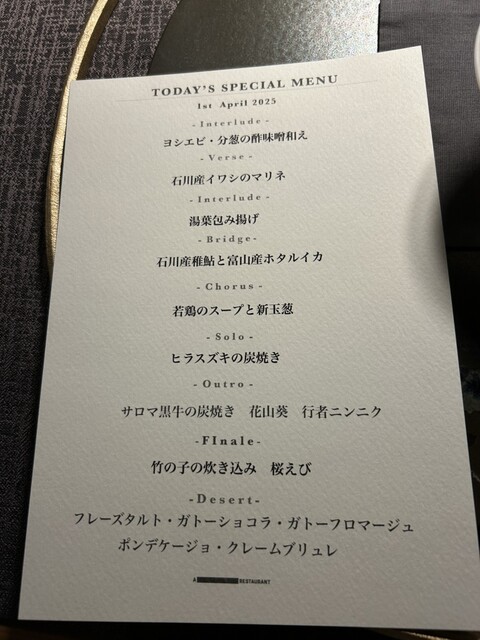 TODAY'S SPECIAL MENU
1st April 2025
-Interlude-
ヨシエビ・分葱の酢味噌和え
-Verse-
石川産イワシのマリネ
-Interlude-
湯葉包み揚げ
-Bridge-
石川産稚鮎と富山産ホタルイカ
-Chorus-
若鶏のスープと新玉葱
-Solo-
ヒラスズキの炭焼き
-Outro-
サロマ黒牛の炭焼き 花山葵 行者ニンニク
-FInale-
竹の子の炊き込み 桜えび
-Desert-
フレーズタルト・ガトーショコラ・ガトーフロマージュ
ポンデケージョ・クレームブリュレ
A RESTAURANT